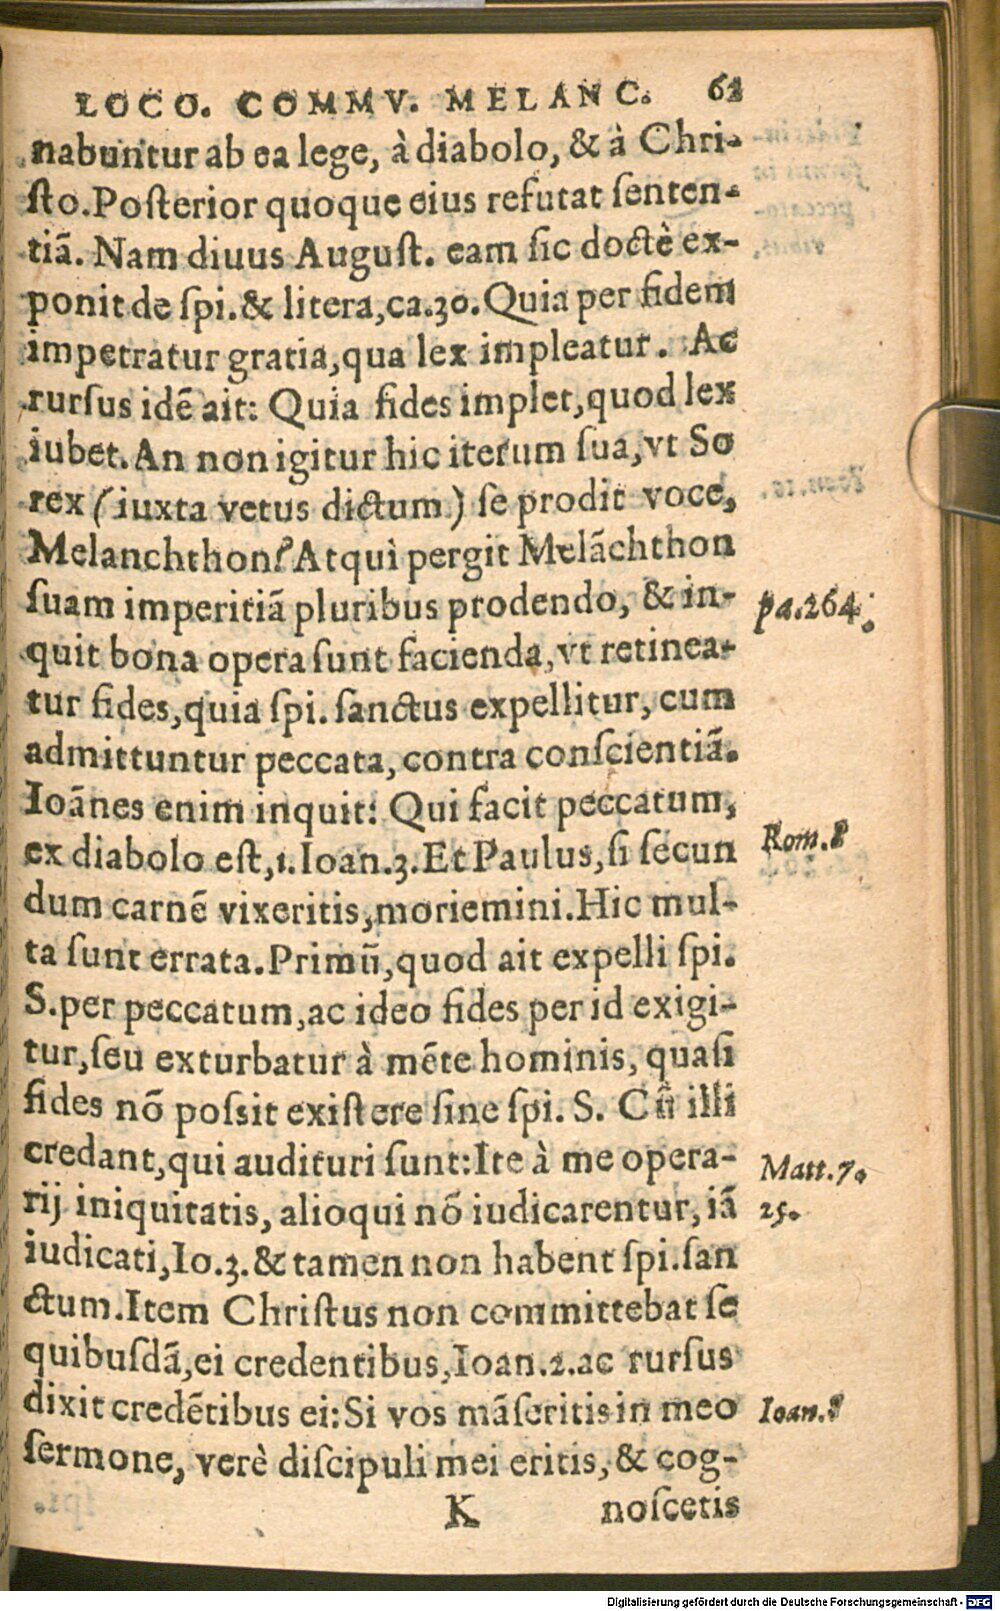 LOCO. COMMV. MELANC. 62
nabuntur ab ea lege, à diabolo, & à Chri-
ſto. Poſterior quoque eius refutat ſenten-
tiã. Nam diuus Auguſt. eam ſic doctè ex-
ponit de ſpi. & litera, ca. 30. Quia per fidem
impetratur gratia, qua lex impleatur. Ac
rurſus idẽ ait: Quia fides implet, quod lex
iubet. An non igitur hic iterum ſua, vt So
rex (iuxta vetus dictum) ſe prodit voce,
Melanchthon? Atquì pergit Melãchthon
ſuam imperitiã pluribus prodendo, & in-
pa. 264.
quit bona opera ſunt facienda, vt retinea-
tur fides, quia ſpi. ſanctus expellitur, cum
admittuntur peccata, contra conſcientiã.
Ioãnes enim inquit: Qui facit peccatum,
ex diabolo eſt, 1. Ioan. 3. Et Paulus, ſi ſecun
Rom. 8
dum carnẽ vixeritis, moriemini. Hic mul-
ta ſunt errata. Primũ, quod ait expelli ſpi.
S. per peccatum, ac ideo fides per id exigi-
tur, ſeu exturbatur à mẽte hominis, quaſi
fides nõ poſsit exiſtere ſine ſpi. S. Cũ illi
credant, qui audituri ſunt: Ite à me opera-
Matt. 7.
rij iniquitatis, alioqui nõ iudicarentur, iã
25.
iudicati, Io. 3. & tamen non habent ſpi. ſan
ctum. Item Chriſtus non committebat ſe
quibuſdã, ei credentibus, Ioan. 2. ac rurſus
dixit credẽtibus ei: Si vos mãſeritis in meo
Ioan. 8
ſermone, verè diſcipuli mei eritis, & cog-
K noſcetis
Digitalisierung gefördert durch die Deutsche Forschungsgemeinschaft - DFG